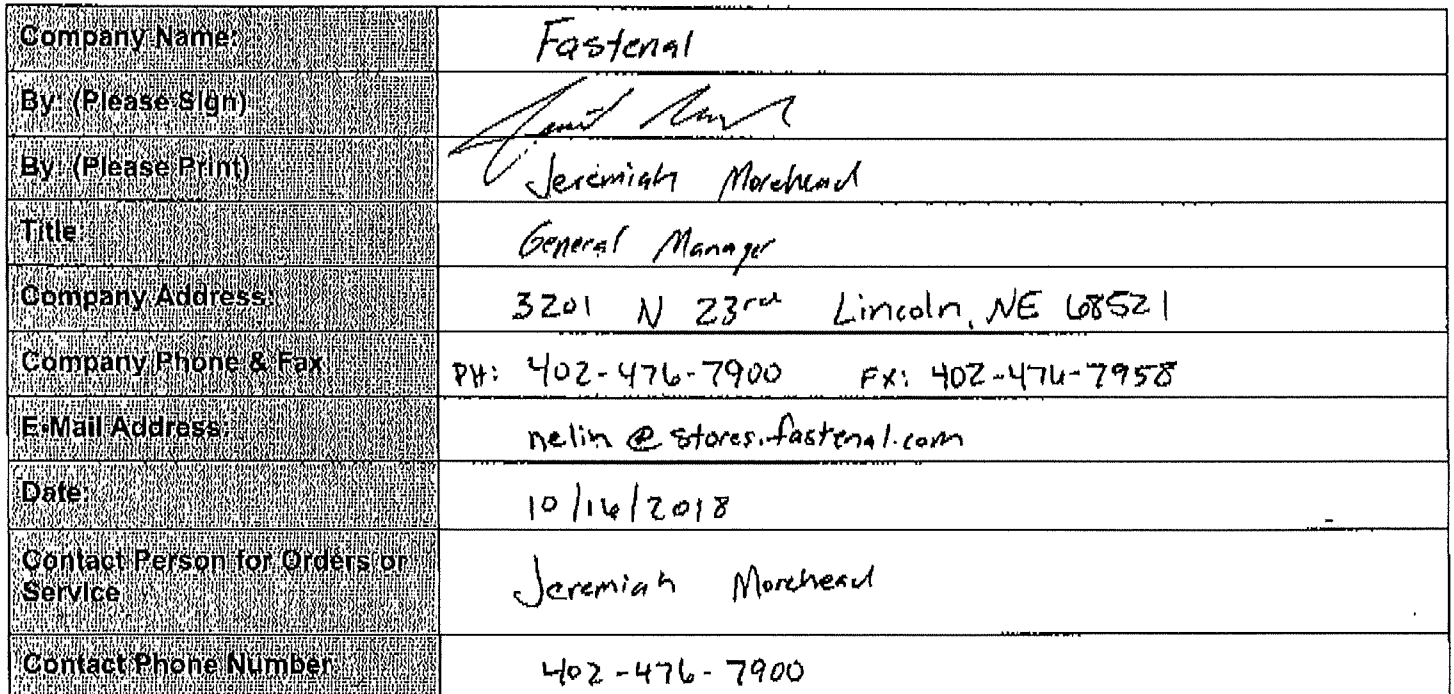 Company Name: Fastenal
By: (Please Sign)
By: (Please Print) Jeremiah Morehead
Title: General Manager
Company Address: 3201 N 23rd Lincoln, NE 68521
Company Phone & Fax PH: 402-476-7900 FX: 402-476-7958
E-Mail Address: nelin@stores.fastenal.com
Date: 10/16/2018
Contact Person for Orders or
Service Jeremiah Morehead
Contact Phone Number 402-476-7900